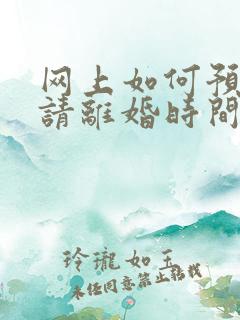 网上如何預
請離婚時間
玲瓏如玉
未经同意禁止转载